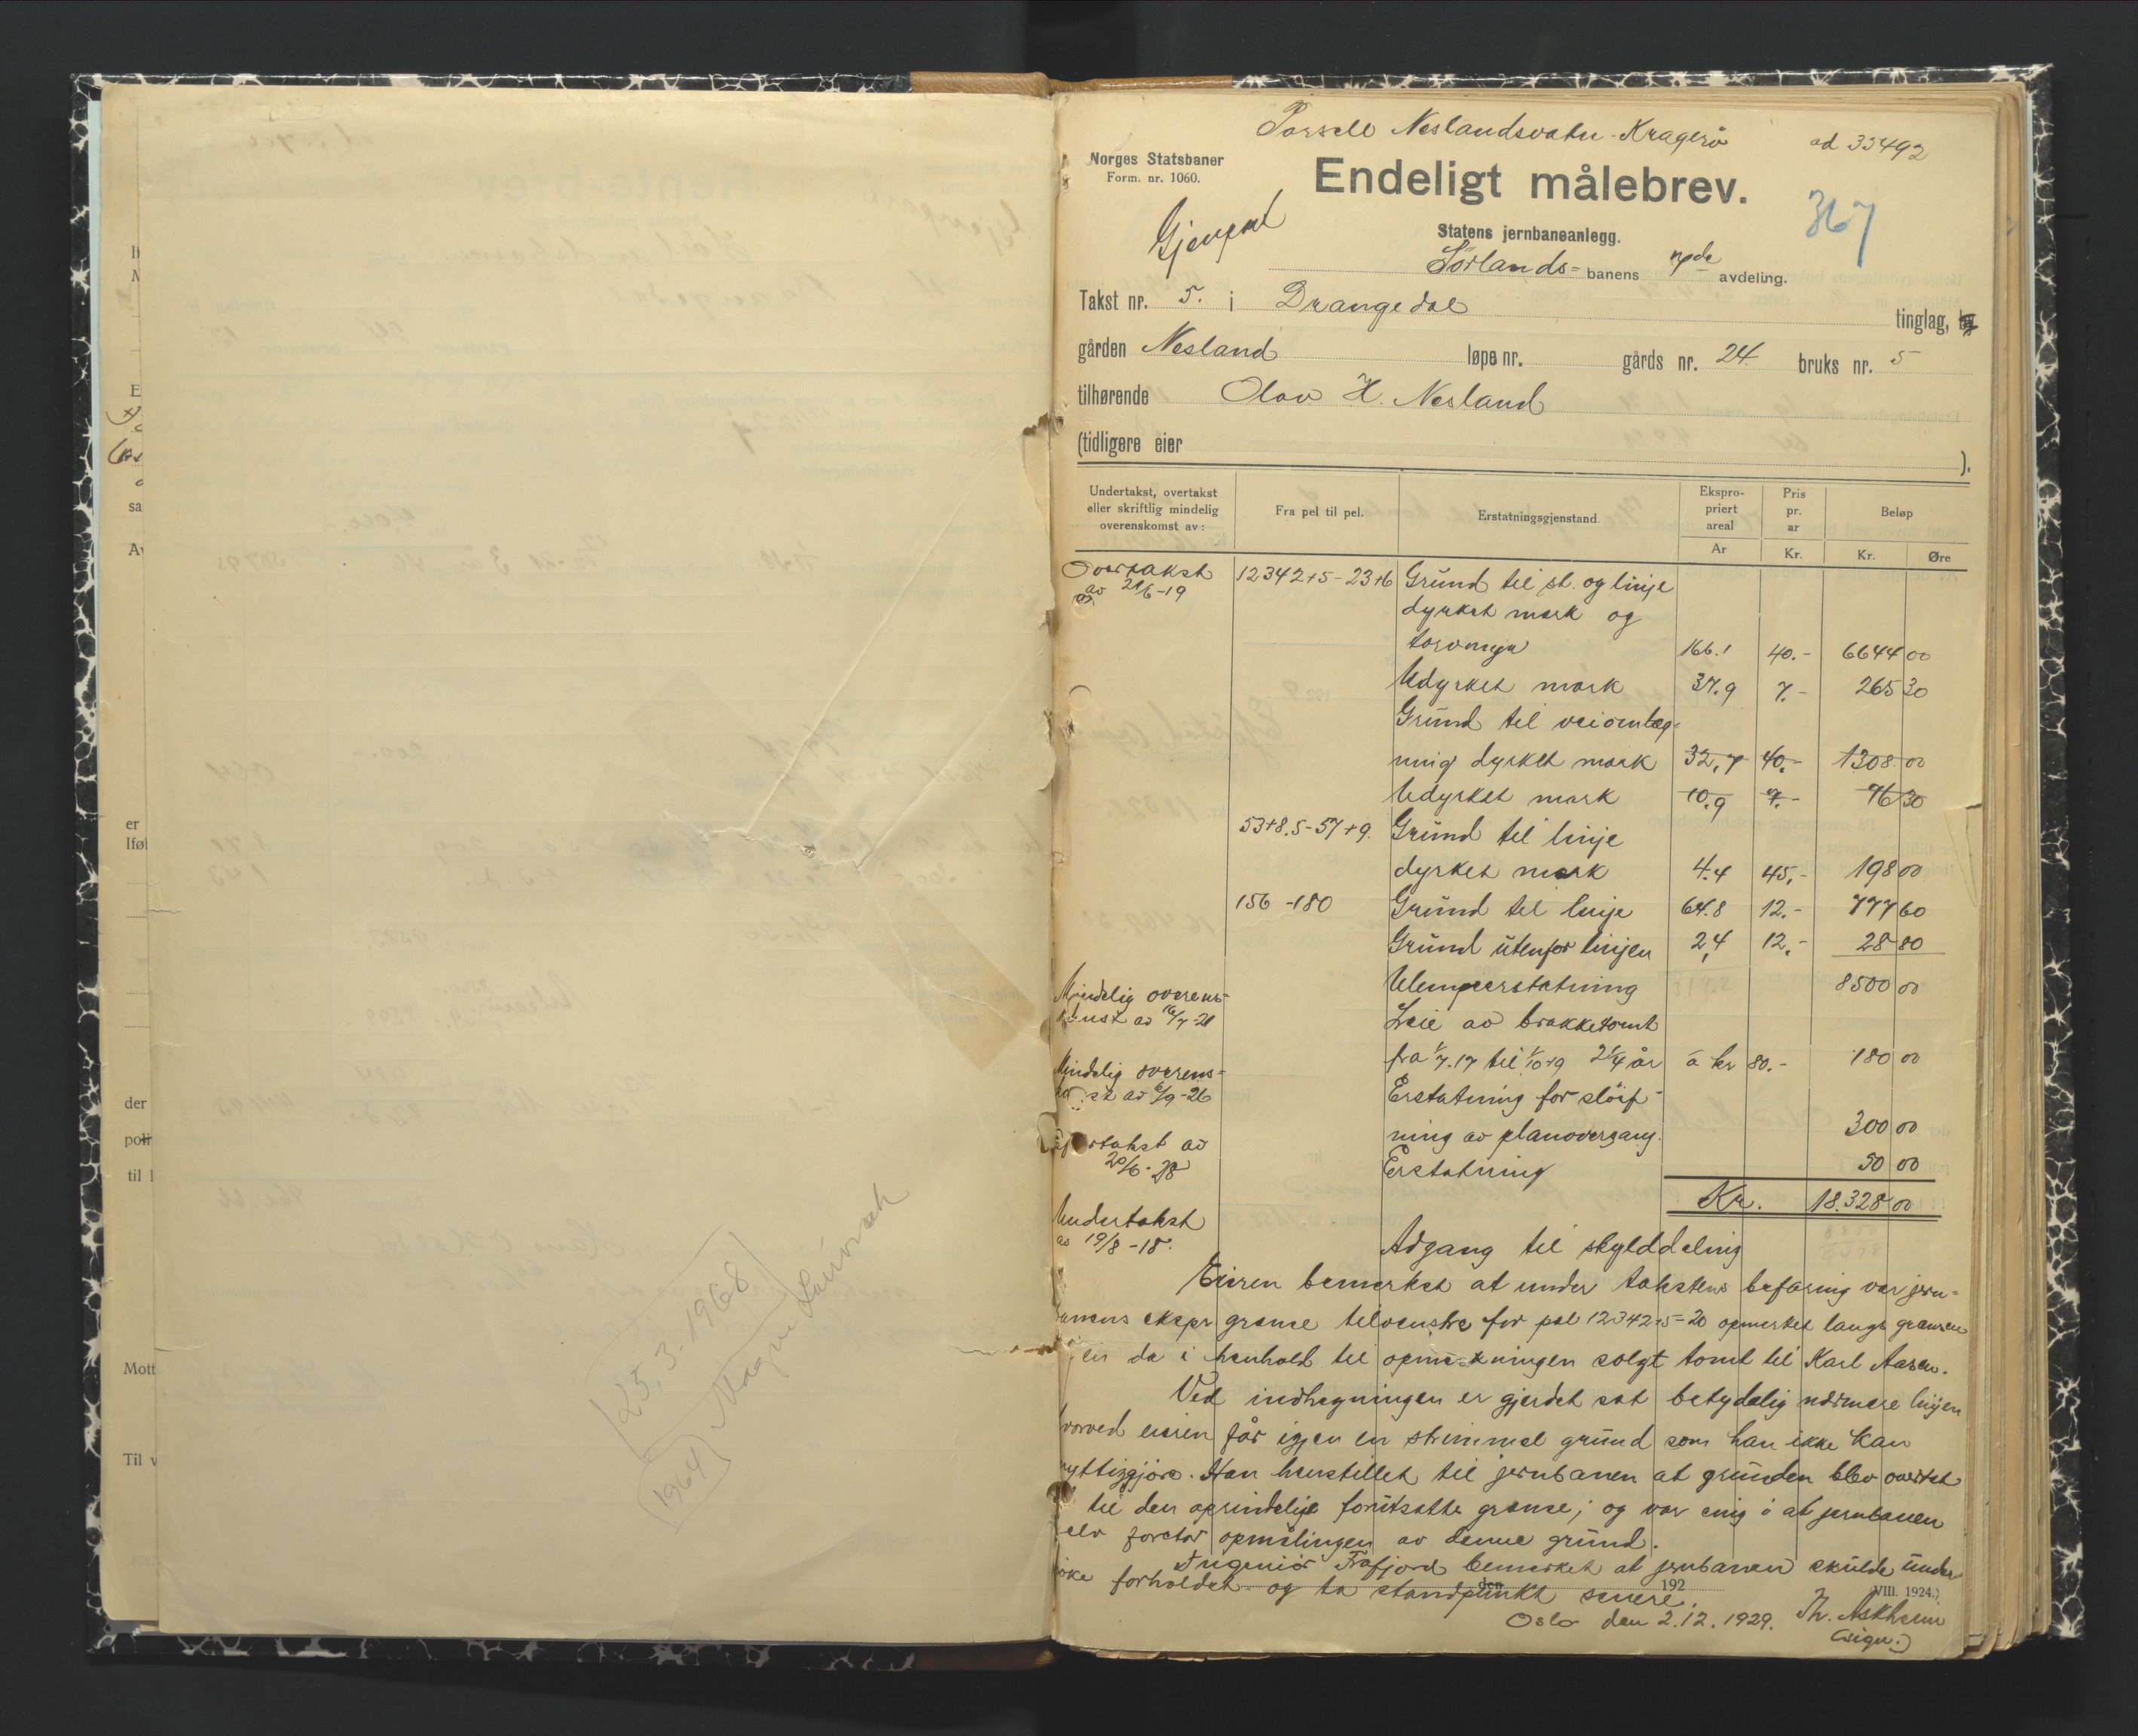 Parsell Neslandsvatn-Kragerø
ad 33492
Norges Statsbaner
Form. nr. 1060.
Endeligt målebrev.
367
Gjenpart
Statens jernbaneanlegg.
Sørlands- banens npde avdeling.
Takst nr. 5. i Drangedal tinglag,
gården Nesland løpe nr. gårds nr. 24 bruks nr. 5
tilhørende Olav H. Nesland
(tidligere eier ).
Undertakst, overtakst eller skriftlig mindelig overenskomst av:
Fra pel til pel.
Erstatningsgjenstand.
Ekspropriert areal
Ar
Pris pr. ar
Kr.
Beløp
Kr. Øre
Overtakst 12342+5-23+6 Grund til st. og linje
av 21/6-19 dyrket mark og
torvmyr 166.1 40.- 6644 00
Udyrket mark 37.9 7.- 265 30
Grund til veiomlæg-
ning dyrket mark 32,7 40.- 1308 00
Udyrket mark 10.9 7.- 76 30
53+8.5-57+9. Grund til linje
dyrket mark 4.4 45,- 198 00
156-180 Grund til linje 64.8 12.- 777 60
Grund utenfor linjen 2,4 12.- 28 80
Ulempeerstatning 8500 00
Mindelig overens-
komst av 16/7-21 Leie av brakketomt
fra 1/7.17 til 1/10-19 2 1/4 år á kr 80.- 180 00
Mindelig overens-
komst av 6/9-26 Erstatning for sløif-
ning av planovergang. 300 00
Overtakst av
20/6-28 Erstatning 50 00
Kr. 18.328 00
Undertakst
av 19/8-18. Adgang til skylddeling
Eieren bemerket at under takstens befaring var jern-
banens ekspr grense tilvenstre for pel 12342+5=20 opmerket langs grensen
da i henhold til opmerkningen solgt tomt til Karl Aasen.
Ved indhegningen er gjerdet sat betydelig nærmere linjen
hvorved eieren får igjen en strimmel grund som han ikke kan
nyttiggjøre. Han henstillet til jernbanen at grunden blev overtat
til den oprindelige forutsatte grense; og var enig i at jernbanen
selv foretar opmålingen av denne grund.
Ingeniør Trafjord bemerket at jernbanen skulde under-
søke forholdet og ta standpunkt senere.
den 192
(VIII. 1924.)
Oslo den 2.12.1929. Th. Askheim
(sign.)
25.3.1968
Magne
(1964)
E
sa
er
Iføl
der
til
Mott
Til v